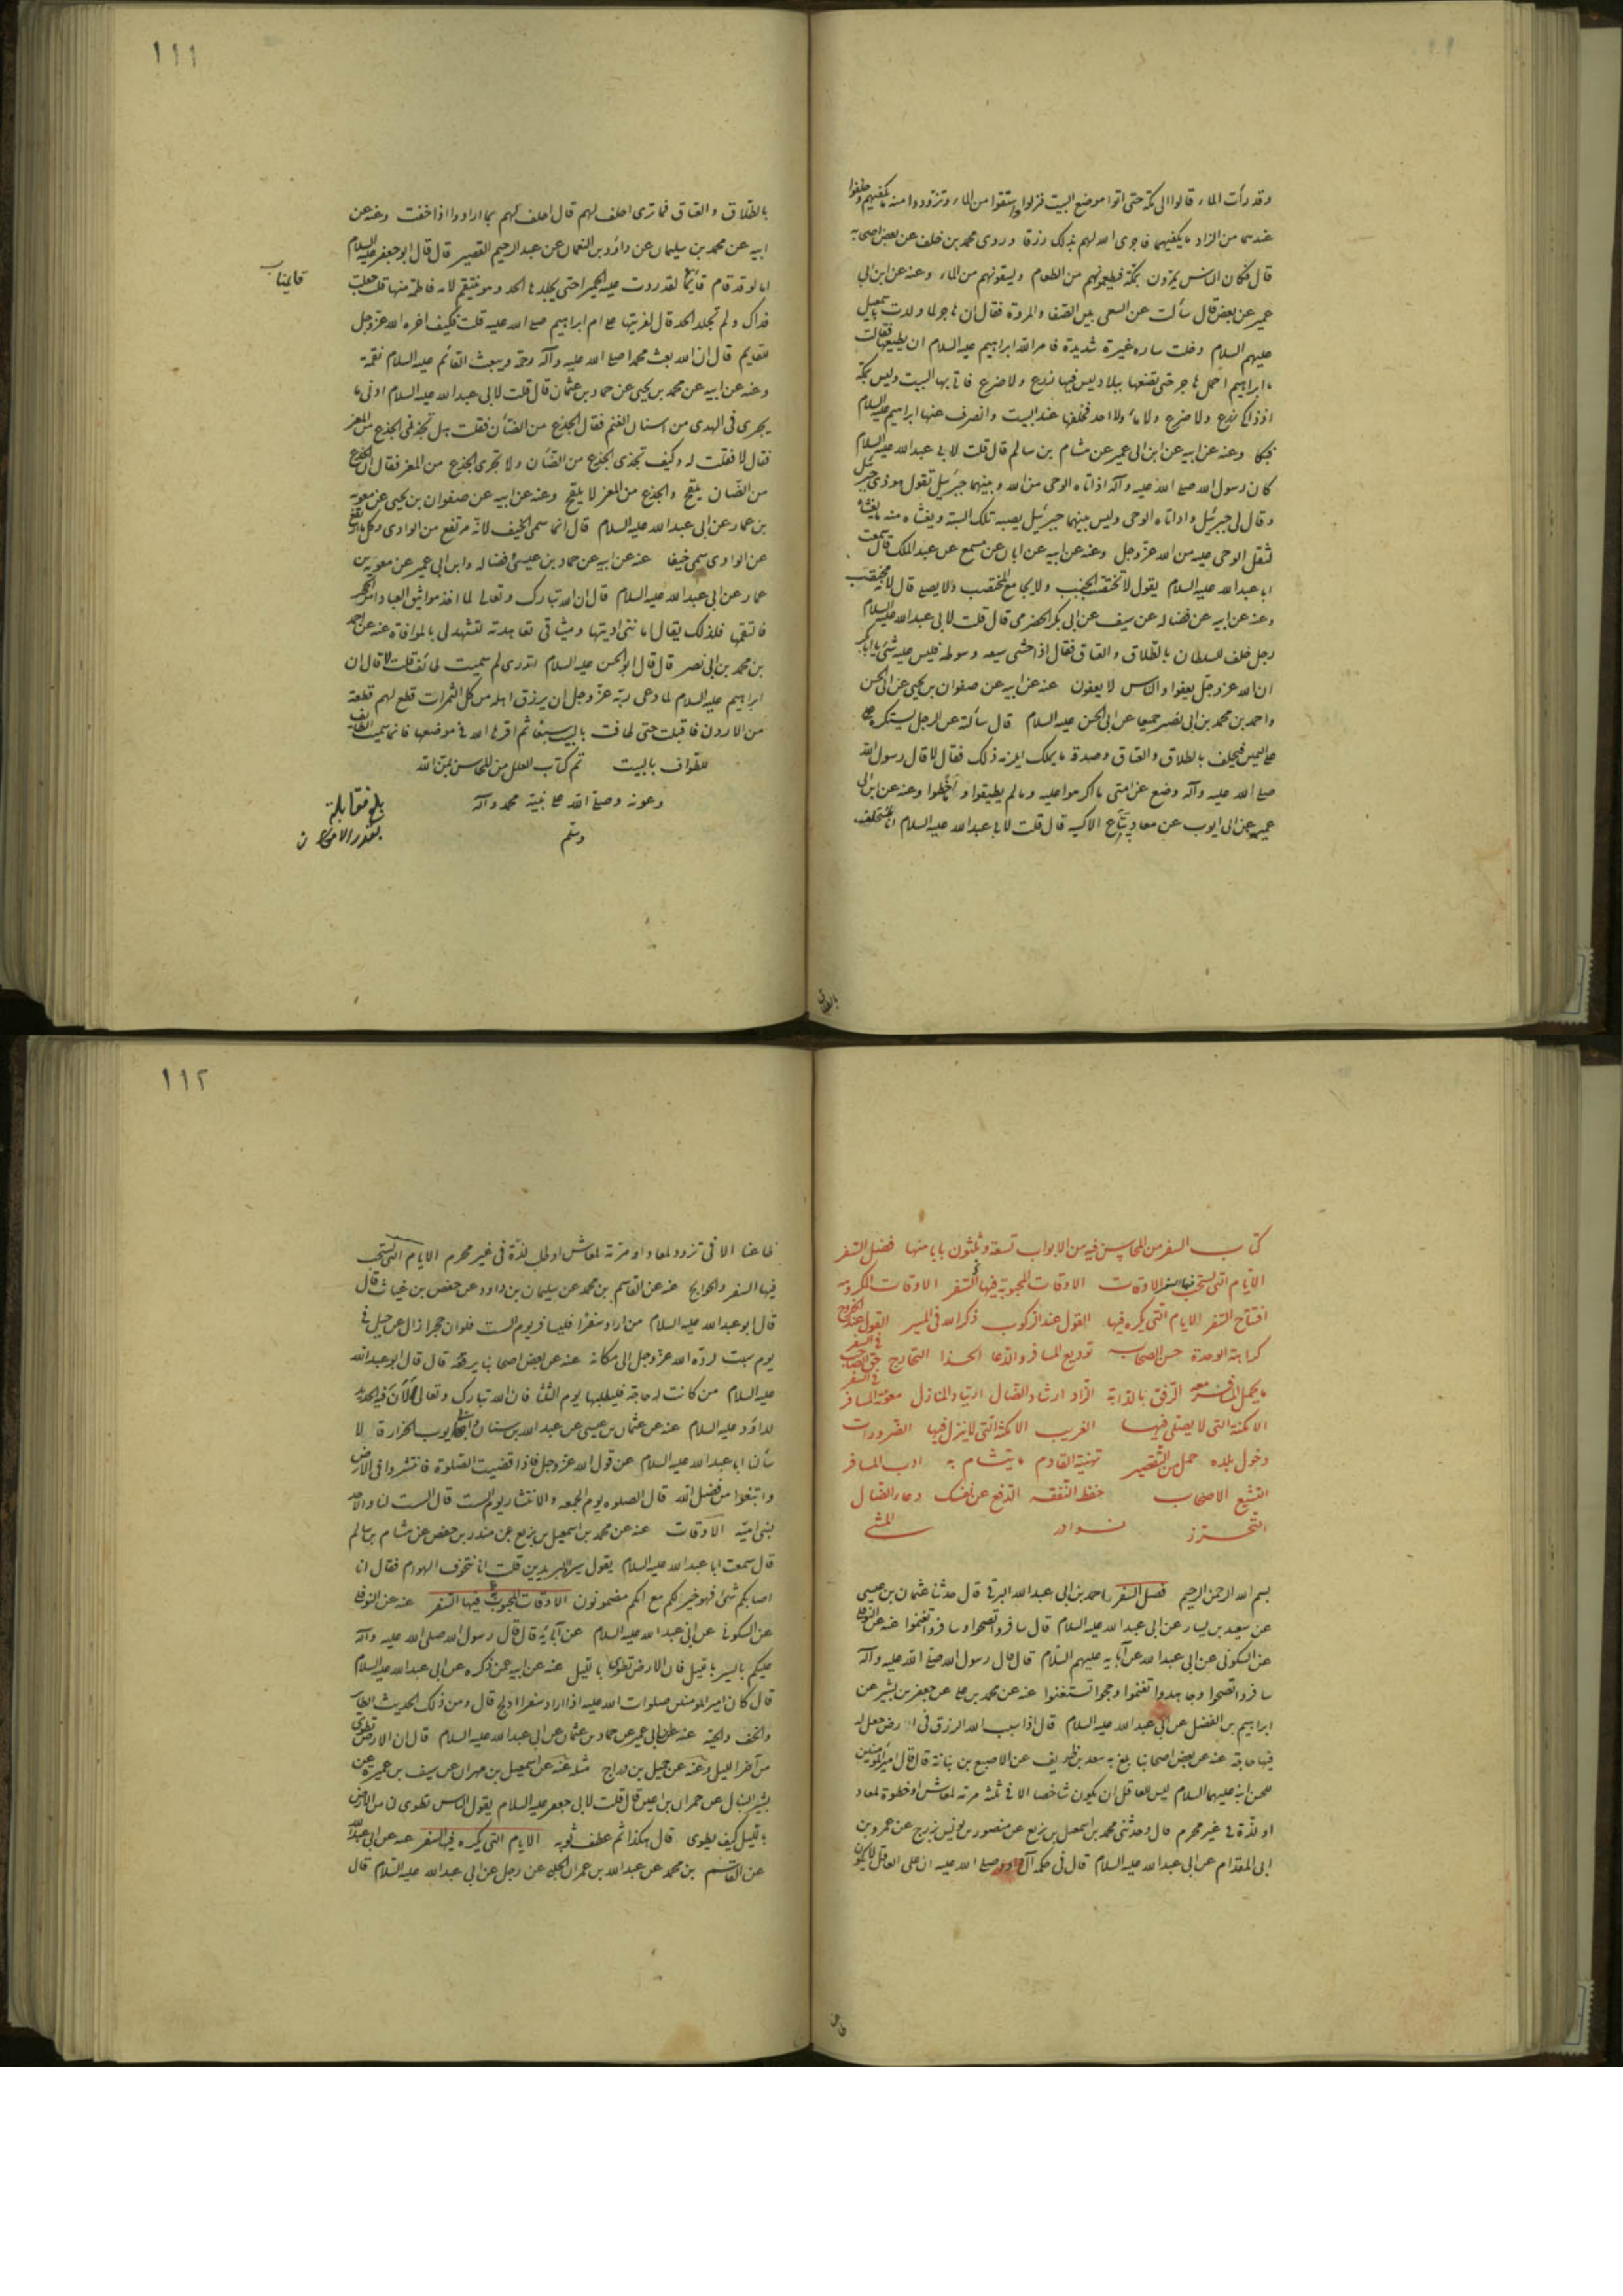 وقد رأت الماء قالوا الى مكة حتى اتوا موضع البيت فنزلوا واستقوا من الماء وتزودوا منه ما يكفيهم وخلفوا
عندهما من الزاد ما يكفيهما فاجرى الله لهم بذلك رزقا وروى محمد بن خلف عن بعض اصحابه
قال فكان الناس يمرون بمكة فيطعمونهم من الطعام ويسقونهم من الماء وعنه عن ابن ابي
عمير عن بعض قال سألت عن السعى بين الصفا والمروة فقال ان هاجر لما ولدت باسمعيل
عليهم السلام دخلت ساره غيرة شديدة فامر الله ابراهيم عليه السلام ان يطيعها فقالت
يا ابراهيم احمل هاجر حتى تضعها ببلاد ليس فيها زرع ولا ضرع فاتى بها البيت وليس بمكة
اذ ذاك زرع ولا ضرع ولا ماء ولا احد فخلفها عند البيت وانصرف عنها ابراهيم عليه السلام
فبكا وعنه عن ابيه عن ابن ابى عمير عن هشام بن سالم قال قلت لابى عبد الله عليه السلام
كان رسول الله صلى الله عليه وآله اذا اتاه الوحى من الله وبينهما جبرئيل تقول هو ذى جبرئيل
وقال لى جبرئيل واذا اتاه الوحى وليس بينهما جبرئيل يصيبه تلك السبتة ويغشاه منه ما يغشاه
لثقل الوحى عليه من الله عز وجل وعنه عن ابيه عن ابان عن مسمع عن عبد الملك قال سمعت
ابا عبد الله عليه السلام يقول لا تختضب الجنب ولا يجامع المختضب ولا يصلى قال لانه مختضب
وعنه عن ابيه عن فضاله عن سيف عن ابى بكر الحضرمى قال قلت لابى عبد الله عليه السلام
رجل حلف للسلطان بالطلاق والعتاق فقال اذا خشى سيفه وسوطه فليس عليه شئ يا ابا بكر
ان الله عز وجل يعفوا والناس لا يعفون عنه عن ابيه عن صفوان بن يحيى عن ابى الحسن
واحمد بن محمد بن ابى نصر جميعا عن ابى الحسن عليه السلام قال سألته عن الرجل يستكره
على اليمين فيحلف بالطلاق والعتاق وصدقة ما يملك ايلزمه ذلك فقال لا قال رسول الله
صلى الله عليه وآله وضع عن امتى ما اكرهوا عليه وما لم يطيقوا وما اخطوا وعنه عن ابن ابى
عمير عن ابى ايوب عن معاذ بياع الاكسيه قال قلت لابى عبد الله عليه السلام انا نستحلف
بالطلاق
١١١
بالطلاق والعتاق فما ترى احلف لهم قال احلف لهم بما ارادوا اذا خفت وعنه عن
ابيه عن محمد بن سليمان عن داؤد بن النعمان عن عبد الرحيم القصير قال قال ابو جعفر عليه السلام
اما لو قد قام قائمنا لقد ردت عليه الحميرا حتى يجلدها الحد وهو ينتقم لامه فاطمة منها قلت جعلت
قايمنا ب
فداك ولم تجلد الحد قال لفريتها على ام ابراهيم صلى الله عليه قلت فكيف اخره الله عز وجل
للقايم قال ان الله بعث محمدا صلى الله عليه وآله رحمة ويبعث القائم عليه السلام نقمة
وعنه عن ابيه عن محمد بن يحيى عن حماد بن عثمان قال قلت لابى عبد الله عليه السلام ادنى ما
يجزى فى الهدى من اسنان الغنم فقال الجذع من الضأن فقلت هل تجزى الجذع من المعز
فقال لا فقلت له وكيف تجزى الجذع من الضان ولا تجزى الجذع من المعز فقال ان الجذع
من الضان يلقح والجذع من المعز لا يلقح وعنه عن ابيه عن صفوان بن يحيى عن معوية
بن عمار عن ابى عبد الله عليه السلام قال انما سمى الخيف لانه مرتفع من الوادى وكل ما ارتفع
عن الوادى سمى خيفا عنه عن ابيه عن حماد بن عيسى وفضاله وابن ابى عمير عن معوية بن
عمار عن ابى عبد الله عليه السلام قال ان الله تبارك وتعالى لما اخذ مواثيق العباد امر الحجر
فالتقمها فلذلك يقال امانتى اديتها وميثاقى تعاهدته لتشهد لى بالموافاة عنه عن احمد
بن محمد بن ابى نصر قال قال ابو الحسن عليه السلام اتدرى لم سميت طائف قلت لا قال ان
ابراهيم عليه السلام لما دعى ربه عز وجل ان يرزق اهله من كل الثمرات قطع لهم قطعة
من الاردن فاقبلت حتى طافت بالبيت سبعا ثم اقرها الله فى موضعها فانما سميت الطايف
للطواف بالبيت تم كتاب العلل من المحاسن بمن الله
وعونه وصلى الله على نبيه محمد وآله
وسلم
بلغ مقابلة
بقدر الامكان
كتاب السفر من المحاسن فيه من الابواب تسعة وثلثون بابا منها فضل السفر
الايام التى يستحب فيها السفر الاوقات الاوقات المحبوبة فيها السفر الاوقات المكروهة
افتتاح السفر الايام التى يكره فيها القول عند الركوب ذكر الله فى المسير القول عند الخروج
كراهة الوحدة حسن الصحابه توديع المسافر والدعا الحدا التخارج حق الصاحب فى السفر
ما يحمل المسافر معه الرفق بالدابة الزاد ارشاد الضال ارتياد المنازل معونة المسافر فى السفر
الامكنة التى لا يصلى فيها الغريب الامكنة التى لا ينزل فيها الضرورات
دخول بلده حمل من التقصير تهنية القادم ما يتشام به ادب المسافر
التشيع الاصحاب حفظ النفقه الدفع عن نفسك دعاء الضال
التحرز نوادر المشى
بسم الله الرحمن الرحيم فضل السفر احمد بن ابى عبد الله البرقى قال حدثنا عثمان بن عيسى
عن سعيد بن يسار عن ابى عبد الله عليه السلام قال سافروا تصحوا وسافروا تغنموا عنه عن النوفلى
عن السكونى عن ابى عبد الله عن آبايه عليهم السلام قال قال رسول الله صلى الله عليه وآله
سافروا تصحوا وجاهدوا تغنموا وحجوا تستغنوا عنه عن محمد بن على عن جعفر بن بشير عن
ابراهيم بن الفضل عن ابى عبد الله عليه السلام قال اذا سبب الله الرزق فى ارض جعل له
فيها حاجة عنه عن بعض اصحابنا بلغ به سعد بن طريف عن الاصبغ بن نباتة قال قال امير المؤمنين
للحسن ابنه عليهما السلام ليس للعاقل ان يكون شاخصا الا فى ثلثة مرمة لمعاش او خطوة لمعاد
او لذة فى غير محرم قال وحدثنى محمد بن اسمعيل بن بزيع عن منصور بن يونس بزرج عن عمرو بن
ابى المقدام عن ابى عبد الله عليه السلام قال فى حكمة آل داود صلى الله عليه ان على العاقل ان لا يكون
ظاعنا
١١٢
ظاعنا الا فى تزود لمعاد او مرمة لمعاش او طلب لذة فى غير محرم الايام التى يستحب
فيها السفر والحوايج عنه عن القاسم بن محمد عن سليمان بن داود عن حفص بن غياث قال
قال ابو عبد الله عليه السلام من اراد سفرا فليسافر يوم السبت فلو ان حجرا زال عن جبل فى
يوم سبت لرده الله عز وجل الى مكانه عنه عن بعض اصحابنا يرفعه قال قال ابو عبد الله
عليه السلام من كانت له حاجة فليطلبها يوم الثلثا فان الله تبارك وتعالى الآن فيه الحديد
لداؤد عليه السلام عنه عن عثمان بن عيسى عن عبد الله بن سنان وابى ايوب الخزاز قالا
سألنا ابا عبد الله عليه السلام عن قول الله عز وجل فاذا قضيت الصلوة فانتشروا فى الارض
وابتغوا من فضل الله قال الصلوه يوم الجمعه والانتشار يوم السبت قال السبت لنا والاحد
لبنى اميه الاوقات عنه عن محمد بن اسمعيل بن بزيع عن منذر بن حفص عن هشام بن سالم
قال سمعت ابا عبد الله عليه السلام يقول سيروا البريدين قلت انا نتخوف الهوام فقال ان
اصابكم شئ فهو خير لكم مع انكم مضمونون الاوقات المحبوبة فيها السفر عنه عن النوفلى
عن السكونى عن ابى عبد الله عليه السلام عن آبائه قال قال رسول الله صلى الله عليه وآله
عليكم بالسير بالليل فان الارض تطوى بالليل عنه عن ابيه عمن ذكره عن ابى عبد الله عليه السلام
قال كان امير المؤمنين صلوات الله عليه اذا اراد سفرا ادلج قال ومن ذلك الحديث الطائر
والخف والحية عنه عن ابن ابى عمير عن حماد بن عثمان عن ابى عبد الله عليه السلام قال ان الارض تطوى
من آخر الليل وعنه عن جميل بن دراج مثله عنه عن اسمعيل بن مهران عن سيف بن عميرة عن
بشير النبال عن حمران بن اعين قال قلت لابى جعفر عليه السلام يقول الناس تطوى لنا من الارض
بالليل كيف يطوى قال هكذا ثم عطف ثوبه الايام التى يكره فيها السفر عنه عن ابى عبد الله
عن القاسم بن محمد عن عبد الله بن عمران الحلبى عن رجل عن ابى عبد الله عليه السلام قال